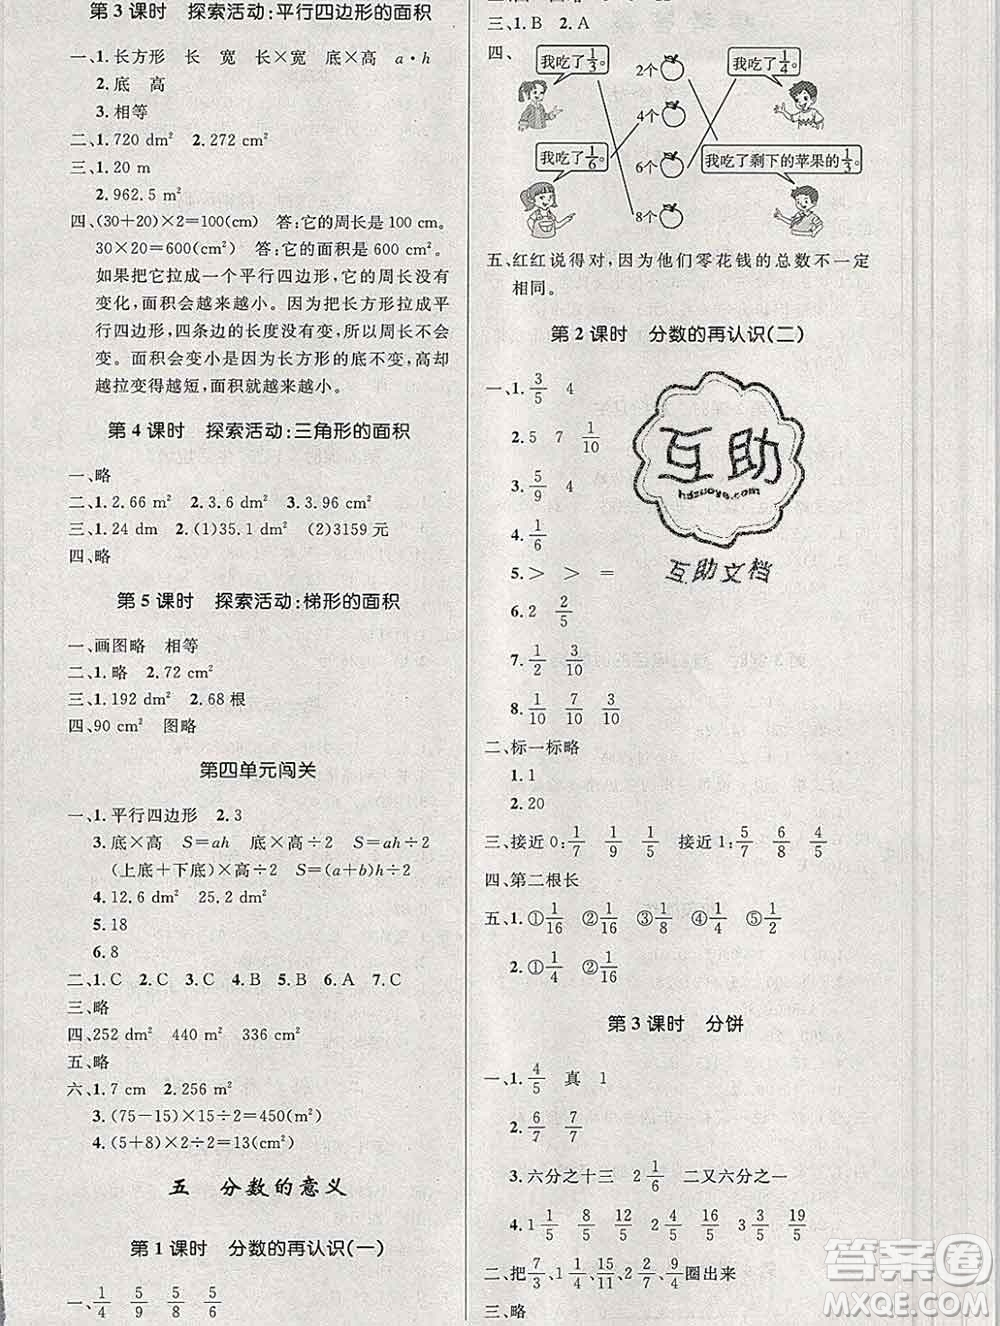 第 3 课时　探索活动:平行四边形的面积
一、1. 长方形　长　宽　长×宽　底×高　a·h
2. 底　高
3. 相等
二、1. 720 dm²　2. 272 cm²
三、1. 20 m
2. 962.5 m²
四、(30+20)×2=100(cm)　答:它的周长是 100 cm.
30×20=600(cm²)　答:它的面积是 600 cm².
如果把它拉成一个平行四边形,它的周长没有
变化,面积会越来越小。因为把长方形拉成平
行四边形,四条边的长度没有变,所以周长不会
变。面积会变小是因为长方形的底不变,高却
越拉变得越短,面积就越来越小。
第 4 课时　探索活动:三角形的面积
一、略
二、1. 2.66 m²　2. 3.6 dm²　3. 3.96 cm²
三、1. 24 dm　2. (1)35.1 dm²　(2)3159 元
四、略
第 5 课时　探索活动:梯形的面积
一、画图略　相等
二、1. 略　2. 72 cm²
三、1. 192 dm²　2. 68 根
四、90 cm²　图略
第四单元闯关
一、1. 平行四边形　2. 3
3. 底×高　S=ah　底×高÷2　S=ah÷2
(上底+下底)×高÷2　S=(a+b)h÷2
4. 12.6 dm²　25.2 dm²
5. 18
6. 8
二、1. C　2. C　3. C　4. B　5. B　6. A　7. C
三、略
四、252 dm²　440 m²　336 cm²
五、略
六、1. 7 cm　2. 256 m²
3. (75-15)×15÷2=450(m²)
4. (5+8)×2÷2=13(cm²)
五　分数的意义
第 1 课时　分数的再认识(一)
一、1/4　5/9　5/8　5/6
三、1. B　2. A
四、
我吃了1/3。　2个　我吃了1/4。
4个
我吃了1/6。　6个　我吃了剩下的苹果的1/3。
8个
五、红红说得对,因为他们零花钱的总数不一定
相同。
第 2 课时　分数的再认识(二)
一、1. 3/5　4
2. 5　7　1/10
3. 5/9　4
4. 1/6
5. >　>　=
6. 2　2/5
7. 1/10　3/10
8. 1/10　7/10　3/10
二、标一标略
1. 1
2. 20
三、接近 0:1/7　1/9　1/5　接近 1:5/7　6/8　4/5
四、第二根长
五、1. ①1/4　②1/16　③1/8　④1/16　⑤1/2
2. ①1/4　②1/16
第 3 课时　分饼
一、1. 4/5　真　1
2. 6/7　7/7
3. 六分之十三　2 1/6　二又六分之一
4. 1/5　8/5　9/5　2 2/5　3 2/5　19/5
二、把7/3、1/1、15/11、2 1/4、9/4圈出来
三、略
互助
hdzuoye.com
互助文档
答案圈
MXQE.COM